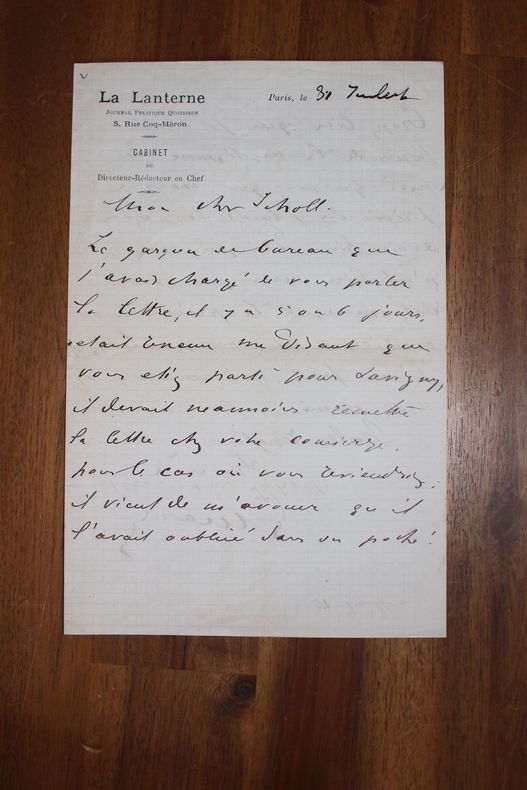 La Lanterne
Journal Politique Quotidien
5, Rue Coq-Héron
CABINET
DU
Directeur-Rédacteur en Chef
Paris, le 31 Juillet
Mon cher Scholl.
Le garçon de bureau que
j'avais chargé de vous porter
la lettre, il y a 5 ou 6 jours,
était revenu me disant que
vous étiez parti pour Savigny,
il devait néanmoins remettre
la lettre chez votre concierge.
pour le cas où vous reviendriez.
il vient de m'avouer qu'il
l'avait oubliée dans sa poche!